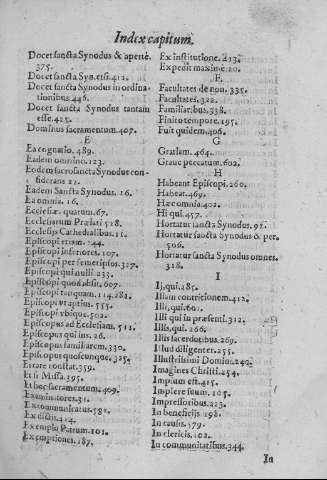 Index capitum.
Docet sancta Synodus & aperte.
375.
Docet sancta Syn. esse. 412.
Docet sancta Synodus in ordina-
tionibus. 446.
Docet sancta Synodus tantam
esse. 425.
Dominus sacramentum. 407.
E
Ea cognatio. 489.
Eadem omnino. 123.
Eodem sacrosancta Synodus con-
siderans 21.
Eadem Sancta Synodus. 16.
Ea omnia. 16.
Ecclesiæ. quatum. 67.
Ecclesiarum Prælati 518.
Ecclesijs Cathedralibus. 11.
Episcopi etiam. 144.
Episcopi inferiores. 107.
Episcopi per semetipsos. 327.
Episcopi qui nulli. 233.
Episcopi quod absit. 607.
Episcopi 114. 281.
Episcopi vt aptius. 555.
Episcopi vbique. 502.
Episcopus ad Ecclesiam. 511.
Episcopus qui ius. 26.
Episcopus familiarem. 330.
Episcopus quoscunque. 325.
Errare constat. 359.
Et si Missa. 395.
Et hoc sacramentum. 409.
Examinatores. 31.
Excommunicatus. 581.
Ex dictis. 414.
Exemplo Patrum. 101.
Exemptiones. 187.
Ex institutione. 213.
Expedit maxime. 20.
F
Facultates de non. 335.
Facultates. 322.
Familiaribus. 338.
Finito tempore. 195.
Fuit quidem. 406.
G
Gratiam. 464.
Graue peccatum. 602.
H
Habeant Episcopi. 260.
Habeat. 469.
Hæc omnia. 402.
Hi qui. 457.
Hortatur sancta Synodus. 92.
Hortatur sancta Synodus & per.
506.
Hortatur sancta Synodus omnes.
318.
I
Ij, qui. 285.
Illam contritionem. 412.
Illi, qui. 601.
Illi qui in præsenti. 312.
Illis, qui. 266.
Illis sacerdotibus. 269.
Illud diligenter. 255.
Illustrissimi Domini. 249.
Imagines Christi. 254.
Impium est. 415.
Implere suum. 105.
Impressoribus. 223.
In beneficijs 198.
In causis. 179.
In clericis. 102.
In communitatibus. 344.
In